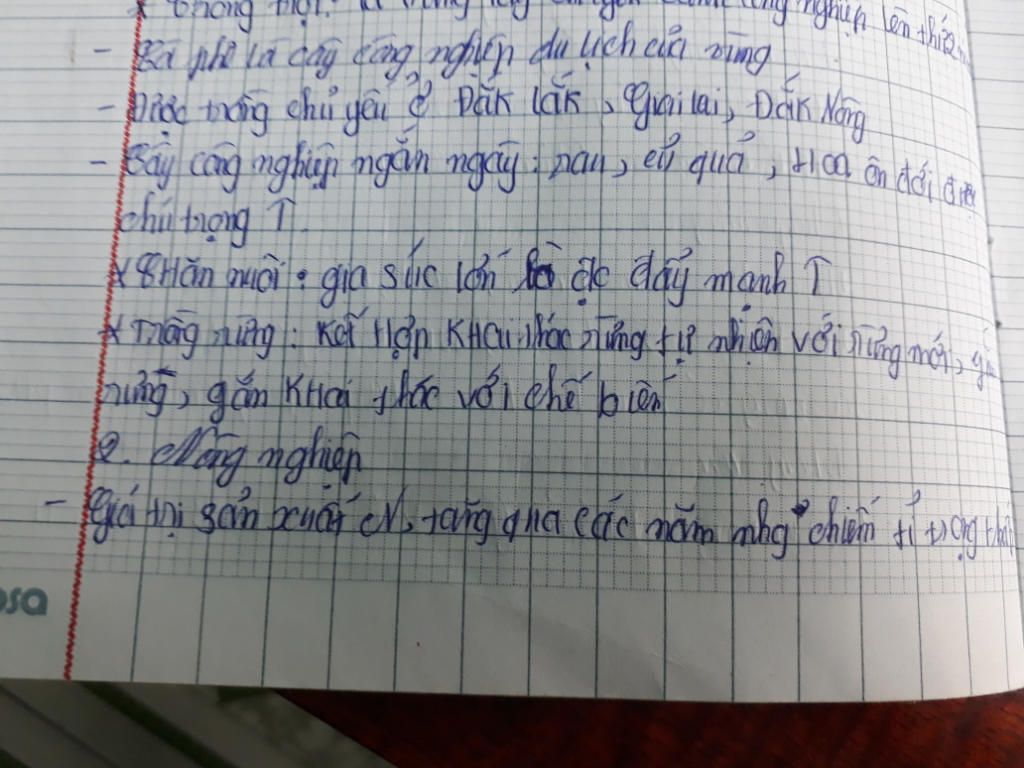 * trồng trọt: là vùng cây công nghiệp lớn thứ 2
- Cà phê là cây công nghiệp du lịch của vùng
- Được trồng chủ yếu ở Đắk Lắk, Giai lai, Đắk Nông
- Cây công nghiệp ngắn ngày: rau, củ quả, Hoa ôn đới được
chú trọng T.
* CHăn nuôi: gia súc lớn đc đẩy mạnh T
* Trồng rừng: Kết Hợp KHai thác rừng tự nhiên với rừng mới,
rừng, gắn KHai thác với chế biến
2. Nông nghiệp
- Giá trị sản xuất CN, tăng qua các năm nhg chiếm tỉ trọng thấp
osa